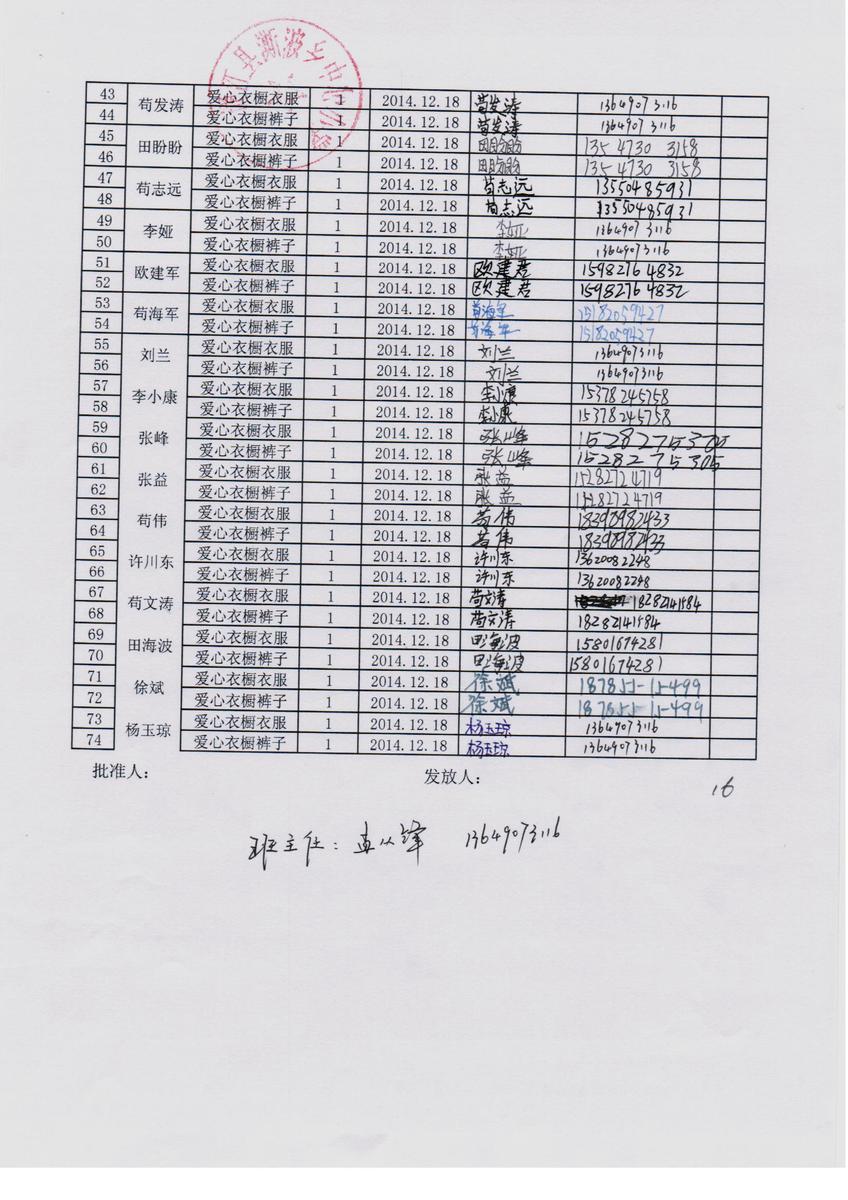 县澌波乡中心小学
43 苟发涛 爱心衣橱衣服 1 2014.12.18 苟发涛 13649073116
44 爱心衣橱裤子 1 2014.12.18 苟发涛 13649073116
45 田盼盼 爱心衣橱衣服 1 2014.12.18 田盼盼 135 4730 3158
46 爱心衣橱裤子 1 2014.12.18 田盼盼 135 4730 3158
47 苟志远 爱心衣橱衣服 1 2014.12.18 苟志远 13550485931
48 爱心衣橱裤子 1 2014.12.18 苟志远 13550485931
49 李娅 爱心衣橱衣服 1 2014.12.18 李娅 13649073116
50 爱心衣橱裤子 1 2014.12.18 李娅 13649073116
51 欧建军 爱心衣橱衣服 1 2014.12.18 欧建君 15982764832
52 爱心衣橱裤子 1 2014.12.18 欧建君 15982764832
53 苟海军 爱心衣橱衣服 1 2014.12.18 苟海军 15182059427
54 爱心衣橱裤子 1 2014.12.18 苟海军 15182059427
55 刘兰 爱心衣橱衣服 1 2014.12.18 刘兰 13649073116
56 爱心衣橱裤子 1 2014.12.18 刘兰 13649073116
57 李小康 爱心衣橱衣服 1 2014.12.18 李小康 15378245758
58 爱心衣橱裤子 1 2014.12.18 李小康 15378245758
59 张峰 爱心衣橱衣服 1 2014.12.18 张峰 1528275305
60 爱心衣橱裤子 1 2014.12.18 张峰 1528275305
61 张益 爱心衣橱衣服 1 2014.12.18 张益 15282724719
62 爱心衣橱裤子 1 2014.12.18 张益 15282724719
63 苟伟 爱心衣橱衣服 1 2014.12.18 苟伟 18398982433
64 爱心衣橱裤子 1 2014.12.18 苟伟 18398982433
65 许川东 爱心衣橱衣服 1 2014.12.18 许川东 13620082248
66 爱心衣橱裤子 1 2014.12.18 许川东 13620082248
67 苟文涛 爱心衣橱衣服 1 2014.12.18 苟文涛 18282141584
68 爱心衣橱裤子 1 2014.12.18 苟文涛 18282141584
69 田海波 爱心衣橱衣服 1 2014.12.18 田海波 15801674281
70 爱心衣橱裤子 1 2014.12.18 田海波 15801674281
71 徐斌 爱心衣橱衣服 1 2014.12.18 徐斌
72 爱心衣橱裤子 1 2014.12.18 徐斌
73 杨玉琼 爱心衣橱衣服 1 2014.12.18 杨玉琼 13649073116
74 爱心衣橱裤子 1 2014.12.18 杨玉琼 13649073116
批准人： 发放人：
16
班主任： 13649073116